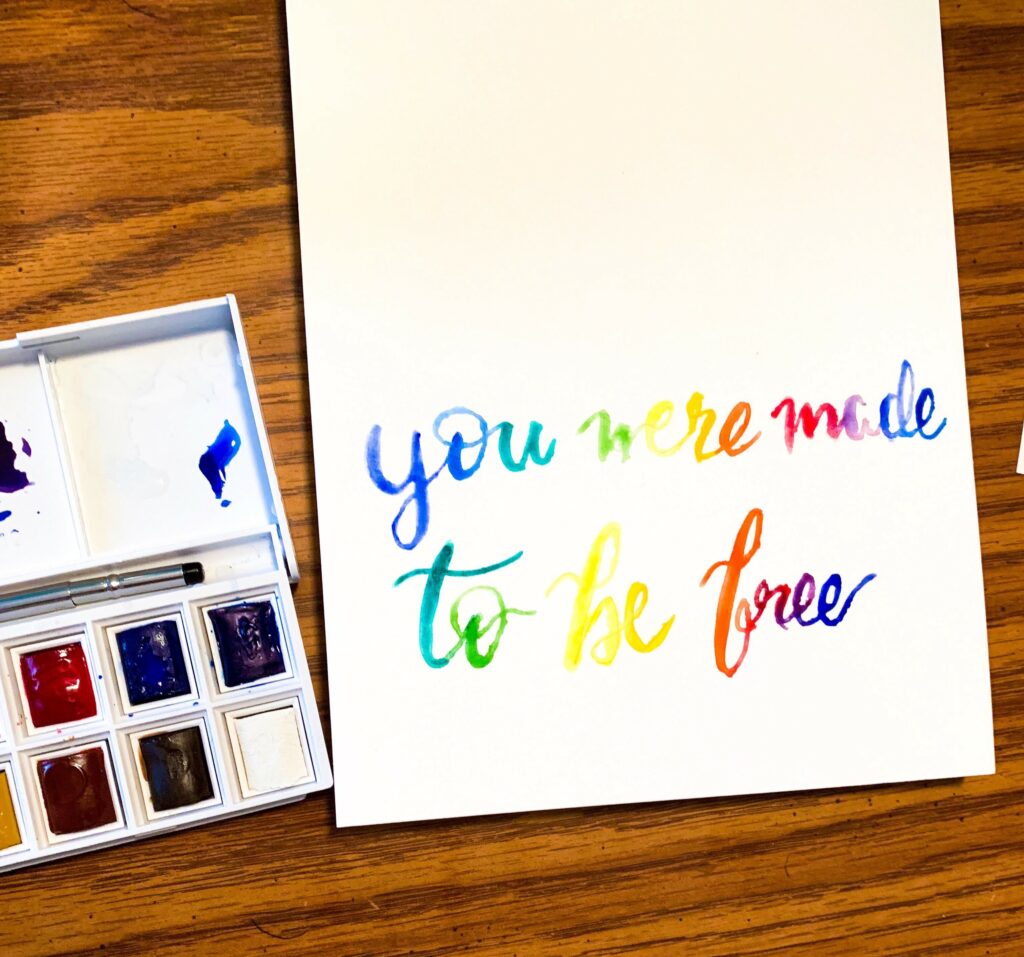 you were made
to be free